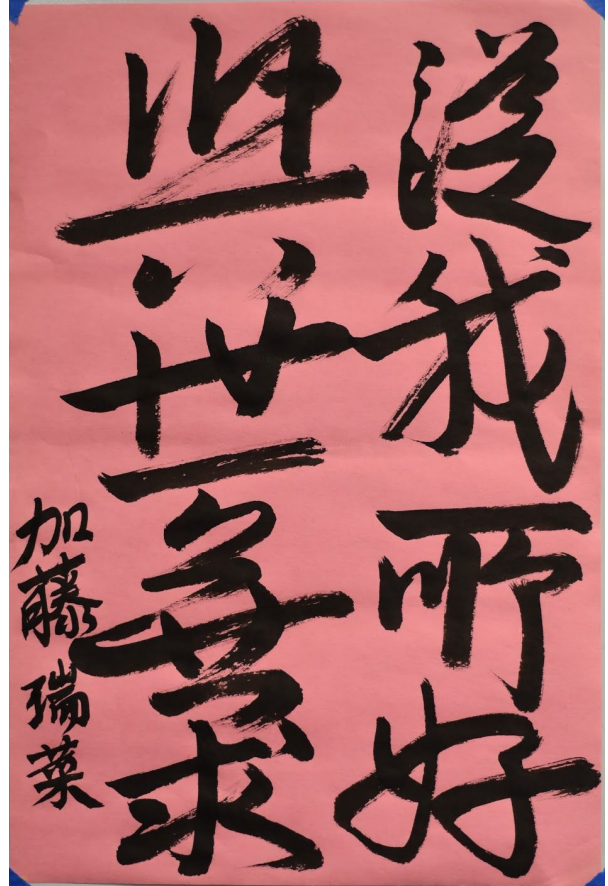 從我所好
與世無求
加藤瑞菜